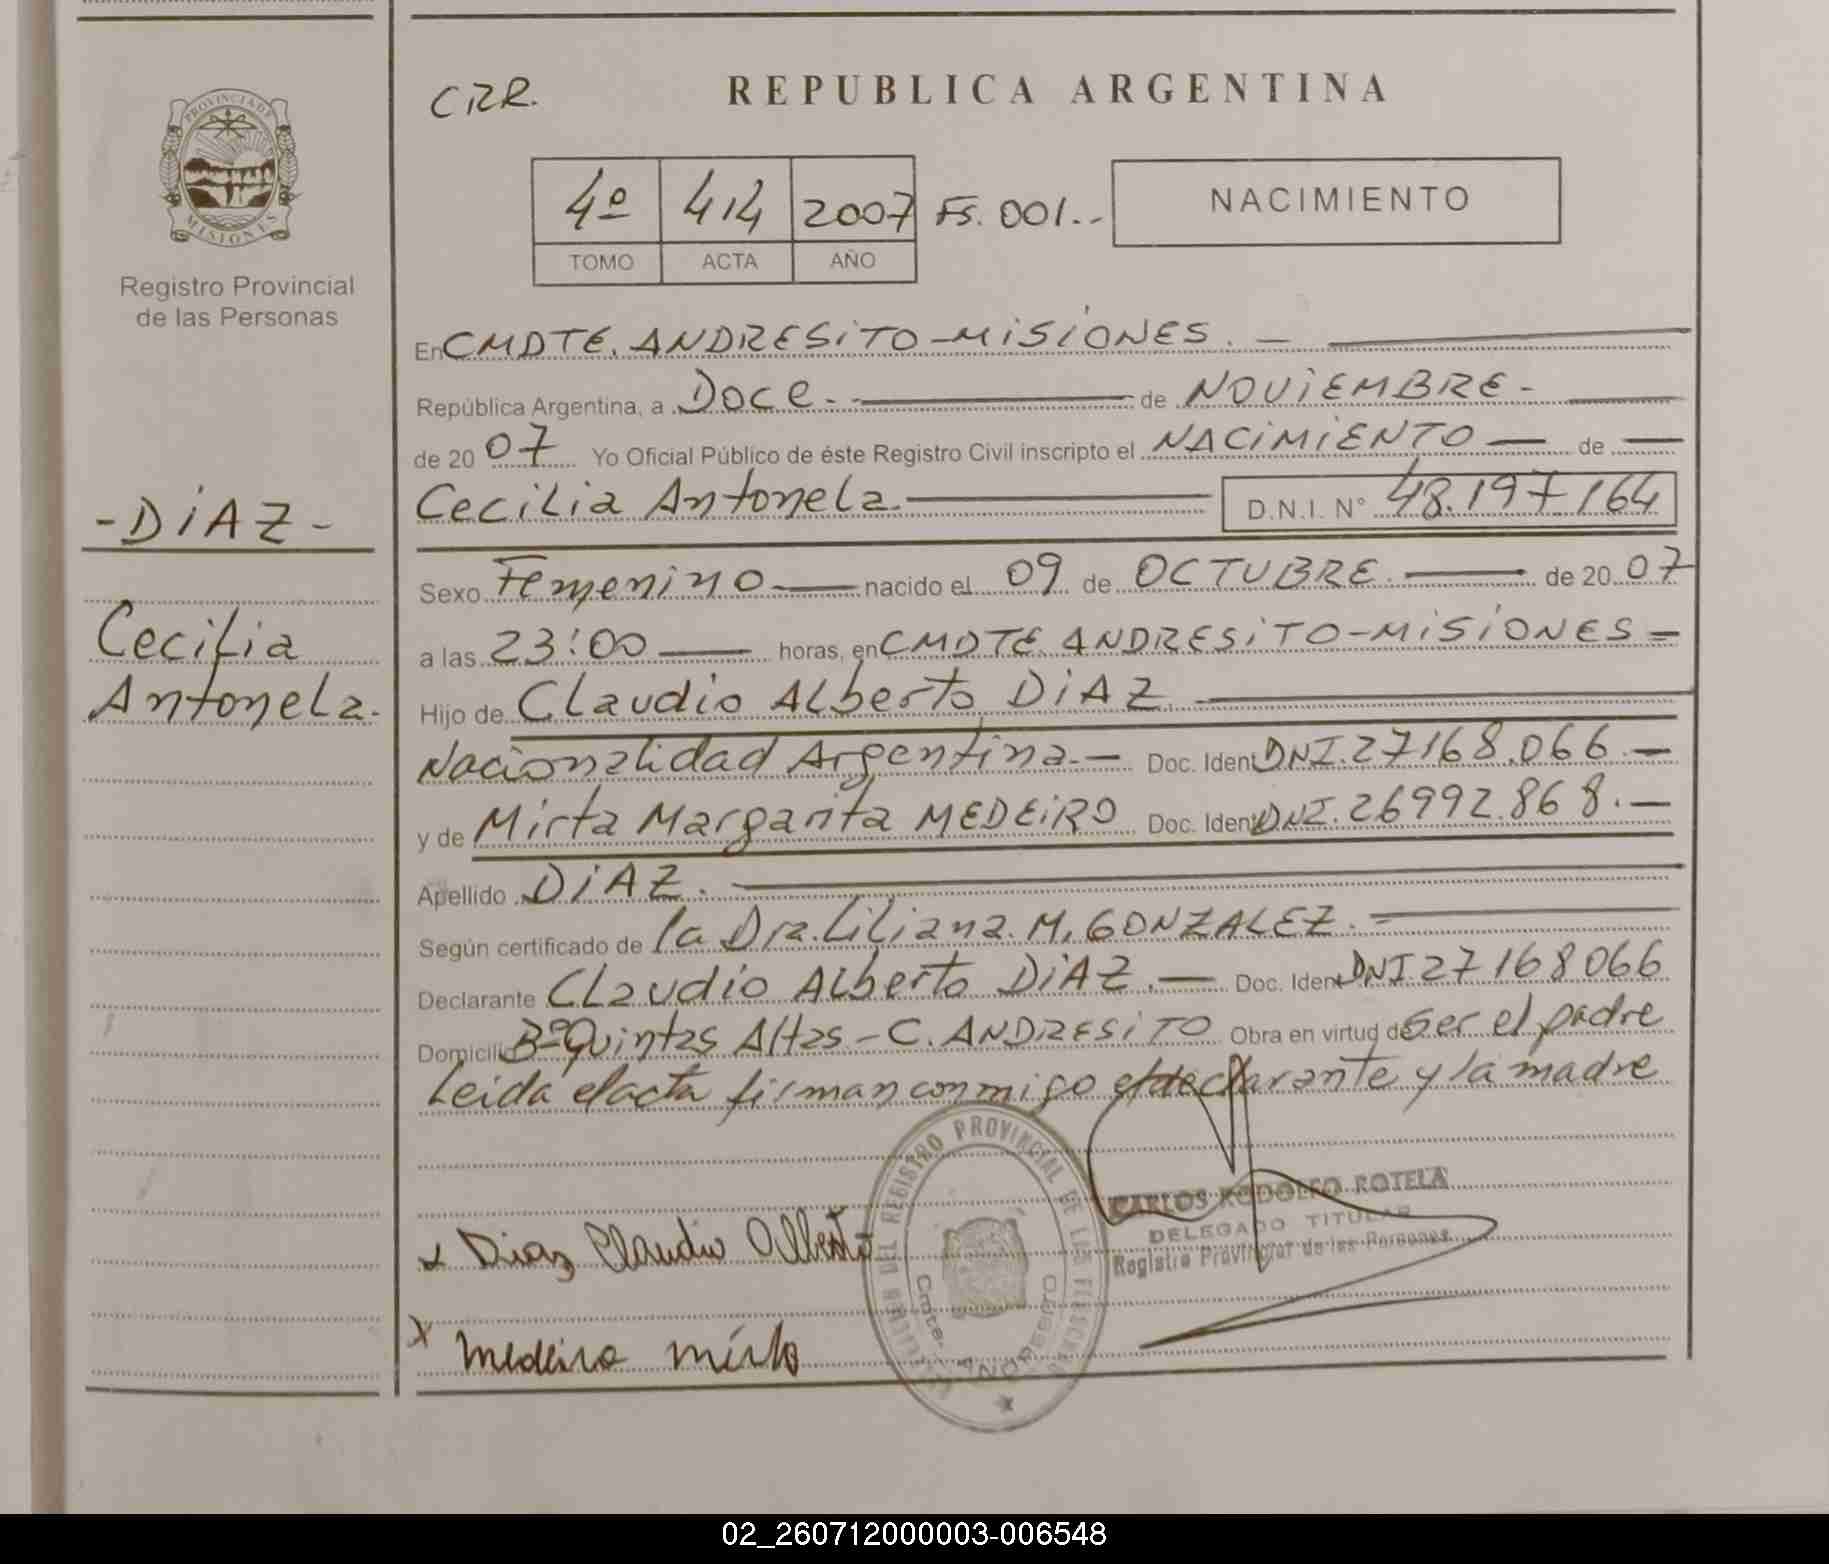 CRR.
REPUBLICA ARGENTINA
PROVINCIA DE
MISIONES
Registro Provincial
de las Personas
4º 414 2007 Fs. 001.--
TOMO ACTA AÑO
NACIMIENTO
En CMDTE. ANDRESiTO-MiSiONES. -
República Argentina, a Doce.- de NOViEMBRE-
de 2007 Yo Oficial Público de éste Registro Civil inscripto el NACiMiENTO — de —
Cecilia Antonela. D.N.I. N° 48.197.164
-DiAZ-
Cecilia
Antonela.
Sexo Femenino — nacido el 09 de OCTUBRE. — de 2007
a las 23:00 — horas, en CMDTE. ANDRESiTO-MiSiONES-
Hijo de Claudio Alberto DiAZ.
Nacionalidad Argentina.- Doc. Ident DNI.27168.066.-
y de Mirta Margarita MEDEiRO Doc. Ident DNI.26992.868.-
Apellido DiAZ.
Según certificado de la Dra. Liliana. M. GONZALEZ.
Declarante Claudio Alberto DiAZ.- Doc. Ident DNI27168066
Domicilio BºQuintas Altas-C. ANDRESiTO Obra en virtud de Ser el padre
Leida elacta firman conmigo eldeclarante y la madre
REGISTRO PROVINCIAL DE LAS PERSONAS
Cmte. ANDRESITO
CARLOS RODOLFO ROTELA
DELEGADO TITULAR
Registro Provincial de las Personas
x Diaz Claudio Alberto
x Medeiro mirta
02_260712000003-006548